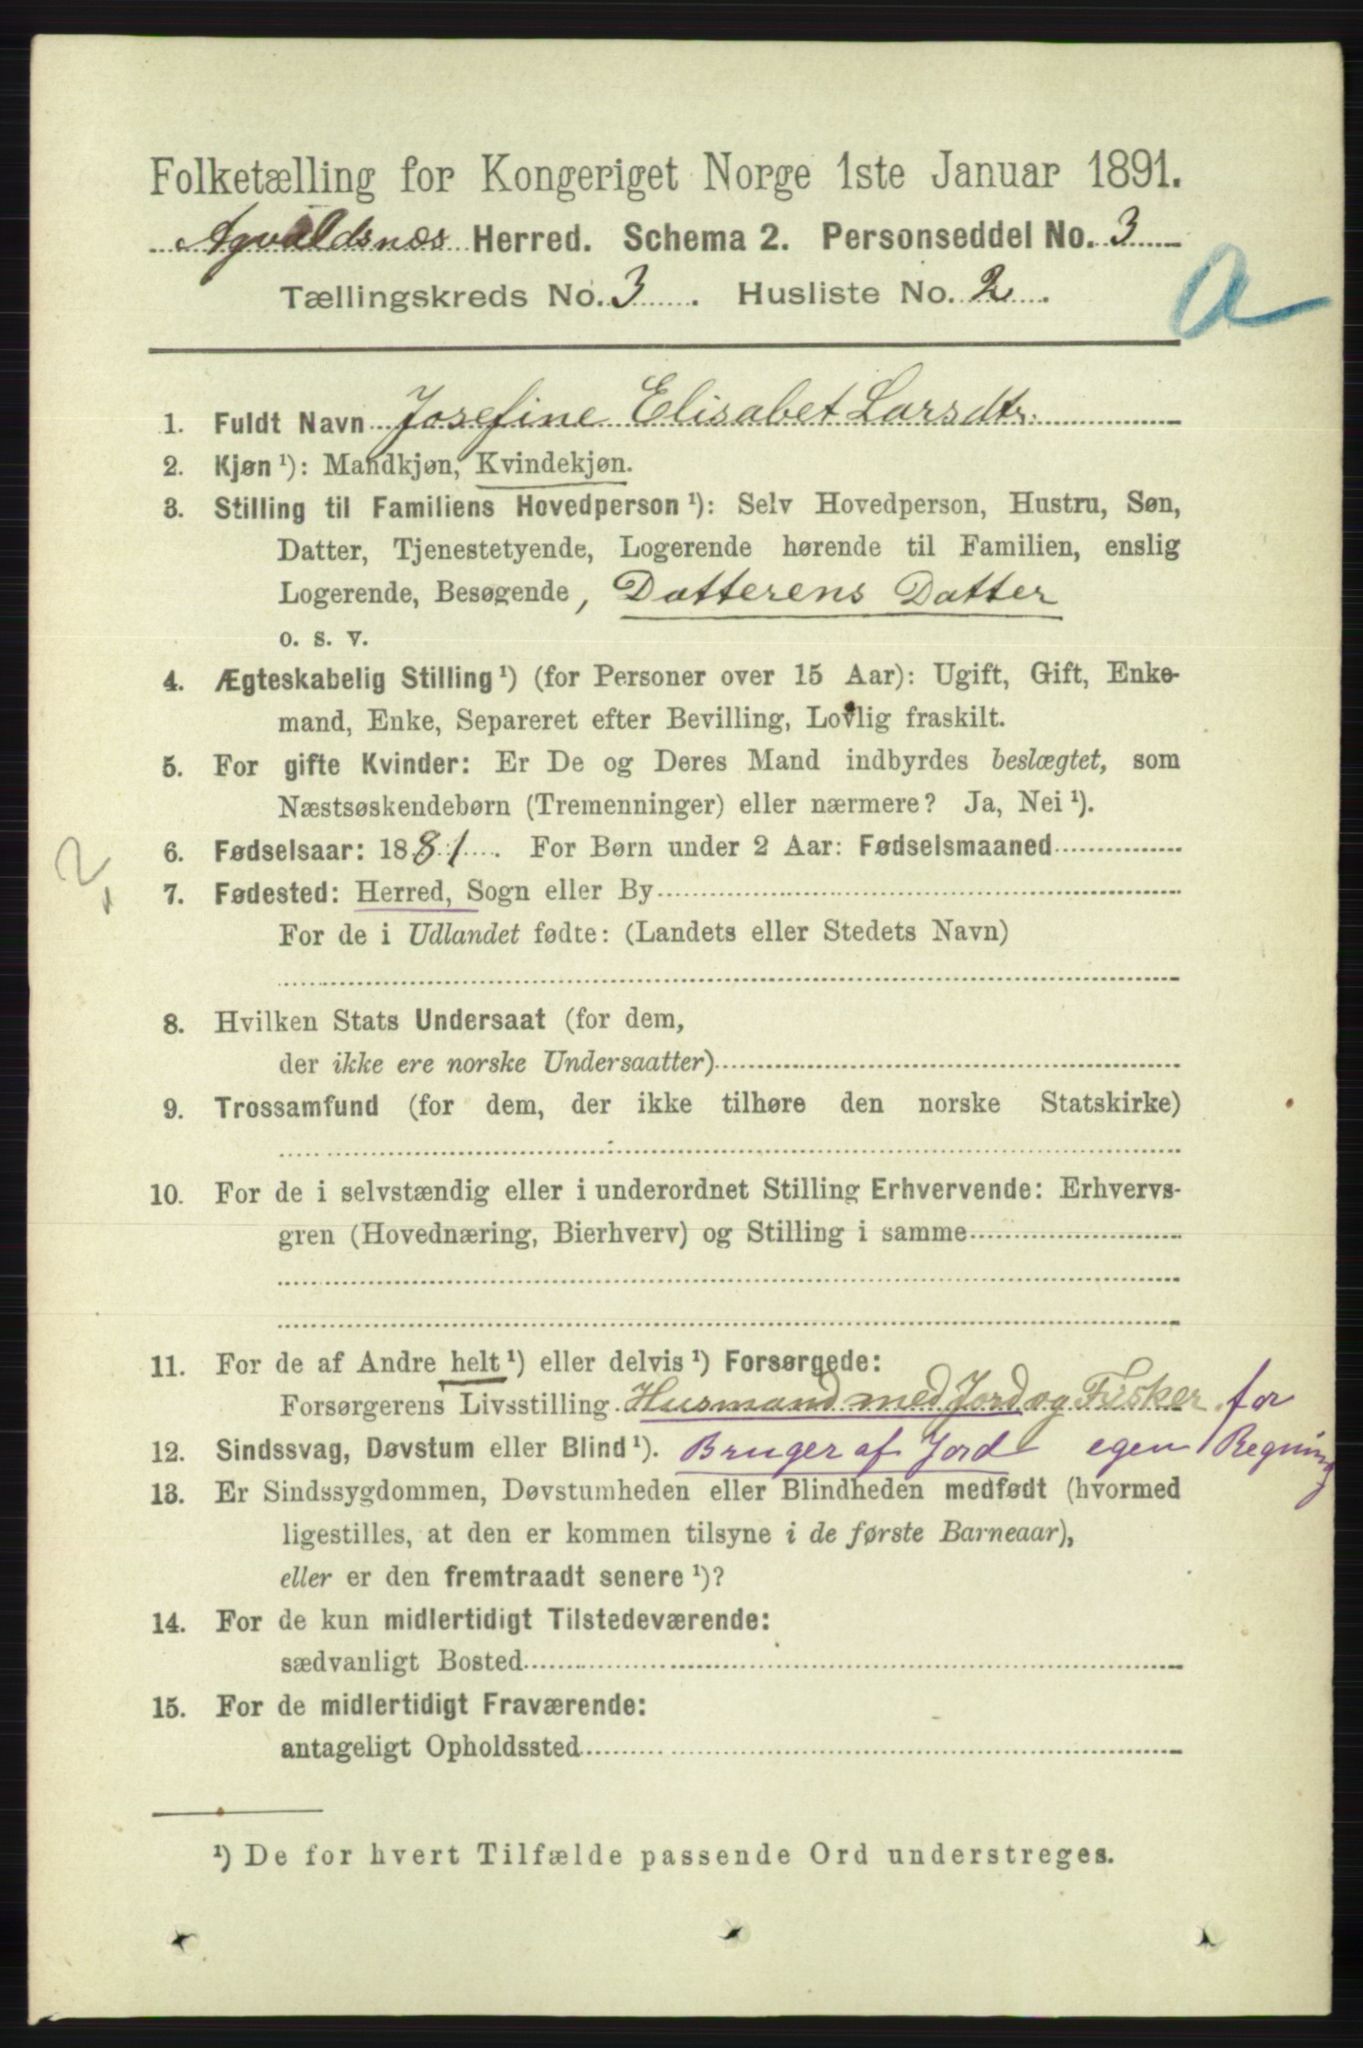 Folketælling for Kongeriget Norge 1ste Januar 1891.
Agvaldsnæs Herred. Schema 2. Personseddel No. 3
Tællingskreds No. 3. Husliste No. 2.
a
1. Fuldt Navn Josefine Elisabet Larsdtr.
2. Kjøn ¹): Mandkjøn, Kvindekjøn.
3. Stilling til Familiens Hovedperson ¹): Selv Hovedperson, Hustru, Søn,
Datter, Tjenestetyende, Logerende hørende til Familien, enslig
Logerende, Besøgende, Datterens Datter
o. s. v.
4. Ægteskabelig Stilling ¹) (for Personer over 15 Aar): Ugift, Gift, Enke-
mand, Enke, Separeret efter Bevilling, Lovlig fraskilt.
5. For gifte Kvinder: Er De og Deres Mand indbyrdes beslægtet, som
Næstsøskendebørn (Tremenninger) eller nærmere? Ja, Nei ¹).
6. Fødselsaar: 1881. For Børn under 2 Aar: Fødselsmaaned
7. Fødested: Herred, Sogn eller By
For de i Udlandet fødte: (Landets eller Stedets Navn)
8. Hvilken Stats Undersaat (for dem,
der ikke ere norske Undersaatter)
9. Trossamfund (for dem, der ikke tilhøre den norske Statskirke)
10. For de i selvstændig eller i underordnet Stilling Erhvervende: Erhvervs-
gren (Hovednæring, Bierhverv) og Stilling i samme
11. For de af Andre helt ¹) eller delvis ¹) Forsørgede:
Forsørgerens Livsstilling Husmand med Jord og Fisker for
12. Sindssvag, Døvstum eller Blind ¹). Bruger af Jord egen Regning
13. Er Sindssygdommen, Døvstumheden eller Blindheden medfødt (hvormed
ligestilles, at den er kommen tilsyne i de første Barneaar),
eller er den fremtraadt senere ¹)?
14. For de kun midlertidigt Tilstedeværende:
sædvanligt Bosted
15. For de midlertidigt Fraværende:
antageligt Opholdssted
¹) De for hvert Tilfælde passende Ord understreges.